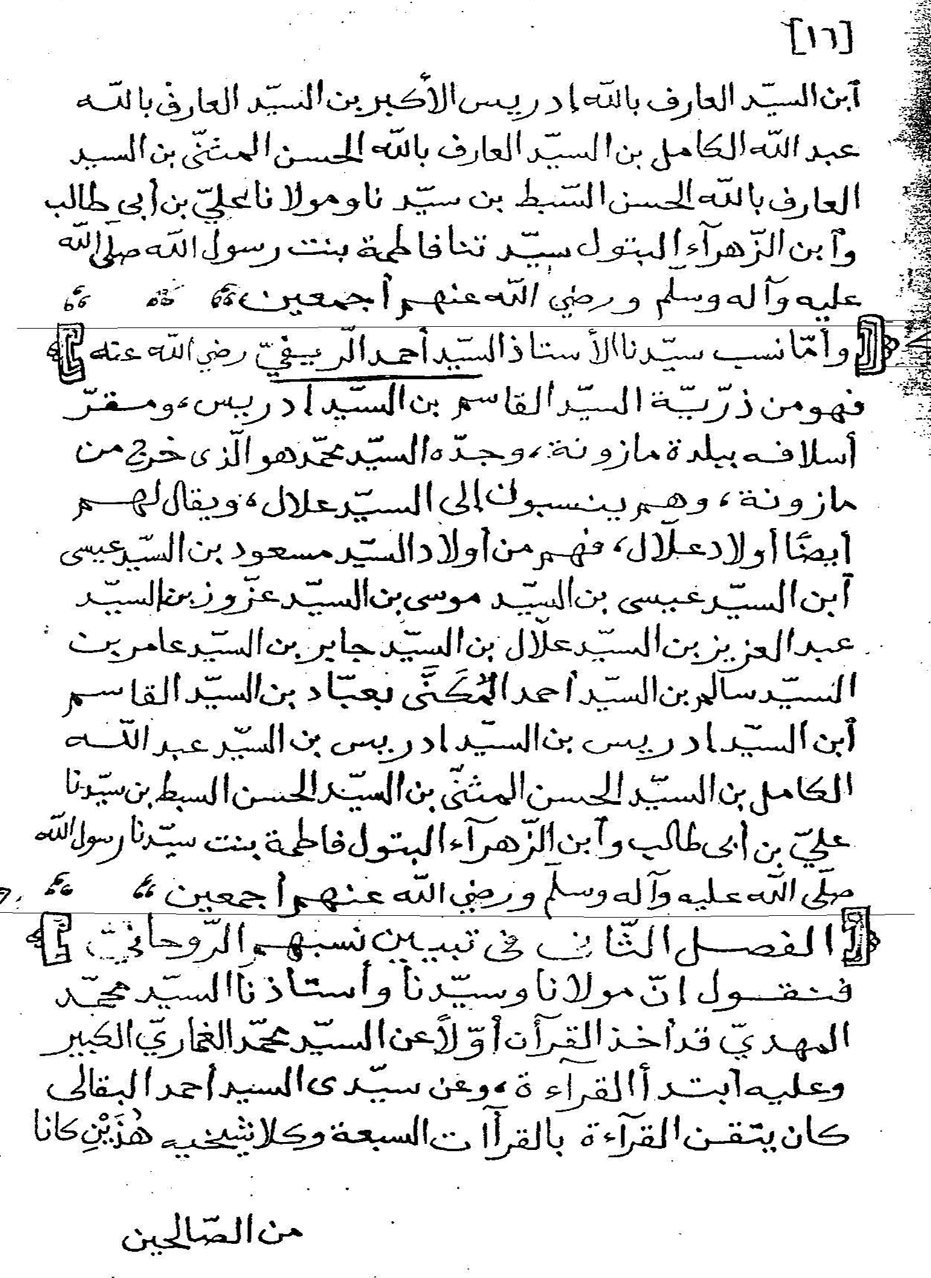 [١٦]
ٱبن السيّد العارف بالله إدريس الأكبر بن السيّد العارف بالله
عبد الله الكامل بن السيّد العارف بالله الحسن المثنّى بن السيد
العارف بالله الحسن السّبط بن سيّدنا ومولانا عليّ بن أبى طالب
وٱبن الزّهرآء البتول سيّدتنا فاطمة بنت رسول الله صلّى الله
عليه وآله وسلّم ورضي الله عنهم أجمعين،
وأمّا نسب سيّدنا الأستاذ السيّد أحمد الرّيفيّ رضي الله عنه
فهو من ذرّيّة السيّد القاسم بن السيّد إدريس، ومقرّ
أسلافه ببلدة مازونة، وجدّه السيّد محمّد هو الّذى خرج من
مازونة، وهم ينسبون إلى السيّد علال، ويقال لهم
أيضًا أولاد علّال، فهم من أولاد السيّد مسعود بن السيّد عيسى
ٱبن السيّد عيسى بن السيّد موسى بن السيّد عزّوز بن السيّد
عبد العزيز بن السيّد علّال بن السيّد جابر بن السيّد عامر بن
السيّد سالم بن السيّد أحمد المُكَنَّى بعبّاد بن السيّد القاسم
ٱبن السيّد إدريس بن السيّد إدريس بن السيّد عبد الله
الكامل بن السيّد الحسن المثنّى بن السيّد الحسن السبط بن سيّدنا
عليّ بن أبى طالب وٱبن الزّهرآء البتول فاطمة بنت سيّدنا رسول الله
صلّى الله عليه وآله وسلّم ورضي الله عنهم أجمعين
الفصل الثّانى فى تبيين نسبهم الرّوحانيّ
فنقول إنّ مولانا وسيّدنا وأستاذنا السيّد محمّد
المهديّ قد أخذ القرآن أوّلاً عن السيّد محمّد الغماريّ الكبير
وعليه ٱبتدأ القرآءة، وعن سيّدى السيد أحمد البقالى
كان يتقن القرآءة بالقرآات السبعة وكلا شيخيه هٰذَيْنِ كانا
من الصّالحين